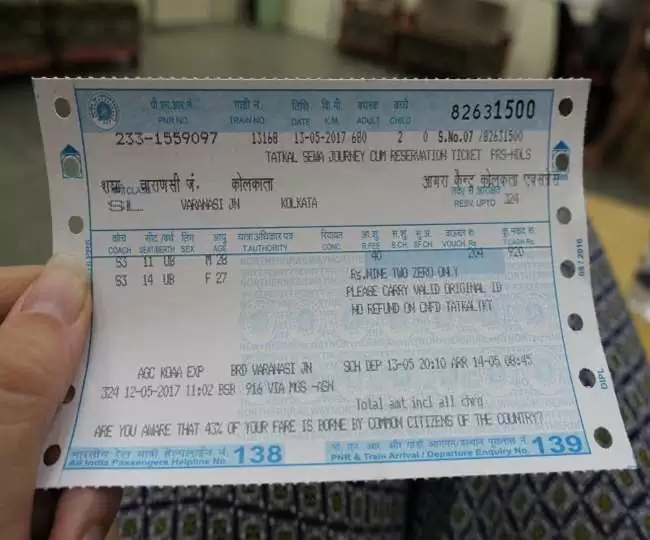 पी.एन.आर.नं. गाड़ी नं. तिथि कि.मी. वयस्क बच्चे 82631500
PNR NO. TRAIN NO. DATE K.M. ADULT CHILD
233-1559097 13168 13-05-2017 680 2 0 S.No.07 /82631500
TATKAL SEWA JOURNEY CUM RESERVATION TICKET PRS-NDLS
वाराणसी जं. कोलकाता आगरा कैन्ट कोलकाता एक्सप्रेस
CLASS
SL VARANASI JN KOLKATA RESV. UPTO 324
कोच सीट/बर्थ लिंग आयु यात्रा अधिकार पत्र रियायत आ.शु. स.शु. सु.अ. वाउचर रु. कु.नकद रु.
COACH SEAT/BERTH SEX AGE T.AUTHORITY CONC. R.FEE S.CH. SF.CH. VOUCH.Rs T.CASH Rs.
S3 11 UB M 28 40 204 920
S3 14 UB F 27 Rs.NINE TWO ZERO ONLY
PLEASE CARRY VALID ORIGINAL ID
NO REFUND ON CNFD TATKALTKT
AGC KOAA EXP BRD VARANASI JN SCH DEP 13-05 20:10 ARR 14-05 08:45
324 12-05-2017 11:02 BSB 916 VIA MGS -ASN
Total amt incl all chrg
ARE YOU AWARE THAT 43% OF YOUR FARE IS BORNE BY COMMON CITIZENS OF THE COUNTRY?
भारतीय रेल यात्री हेल्पलाईन नं. 138
All India Passengers Helpline No.
पी. एन. आर. और गाड़ी आगमन/प्रस्थान पूछताछ नं. 139
PNR & Train Arrival / Departure Enquiry No.
DIPL